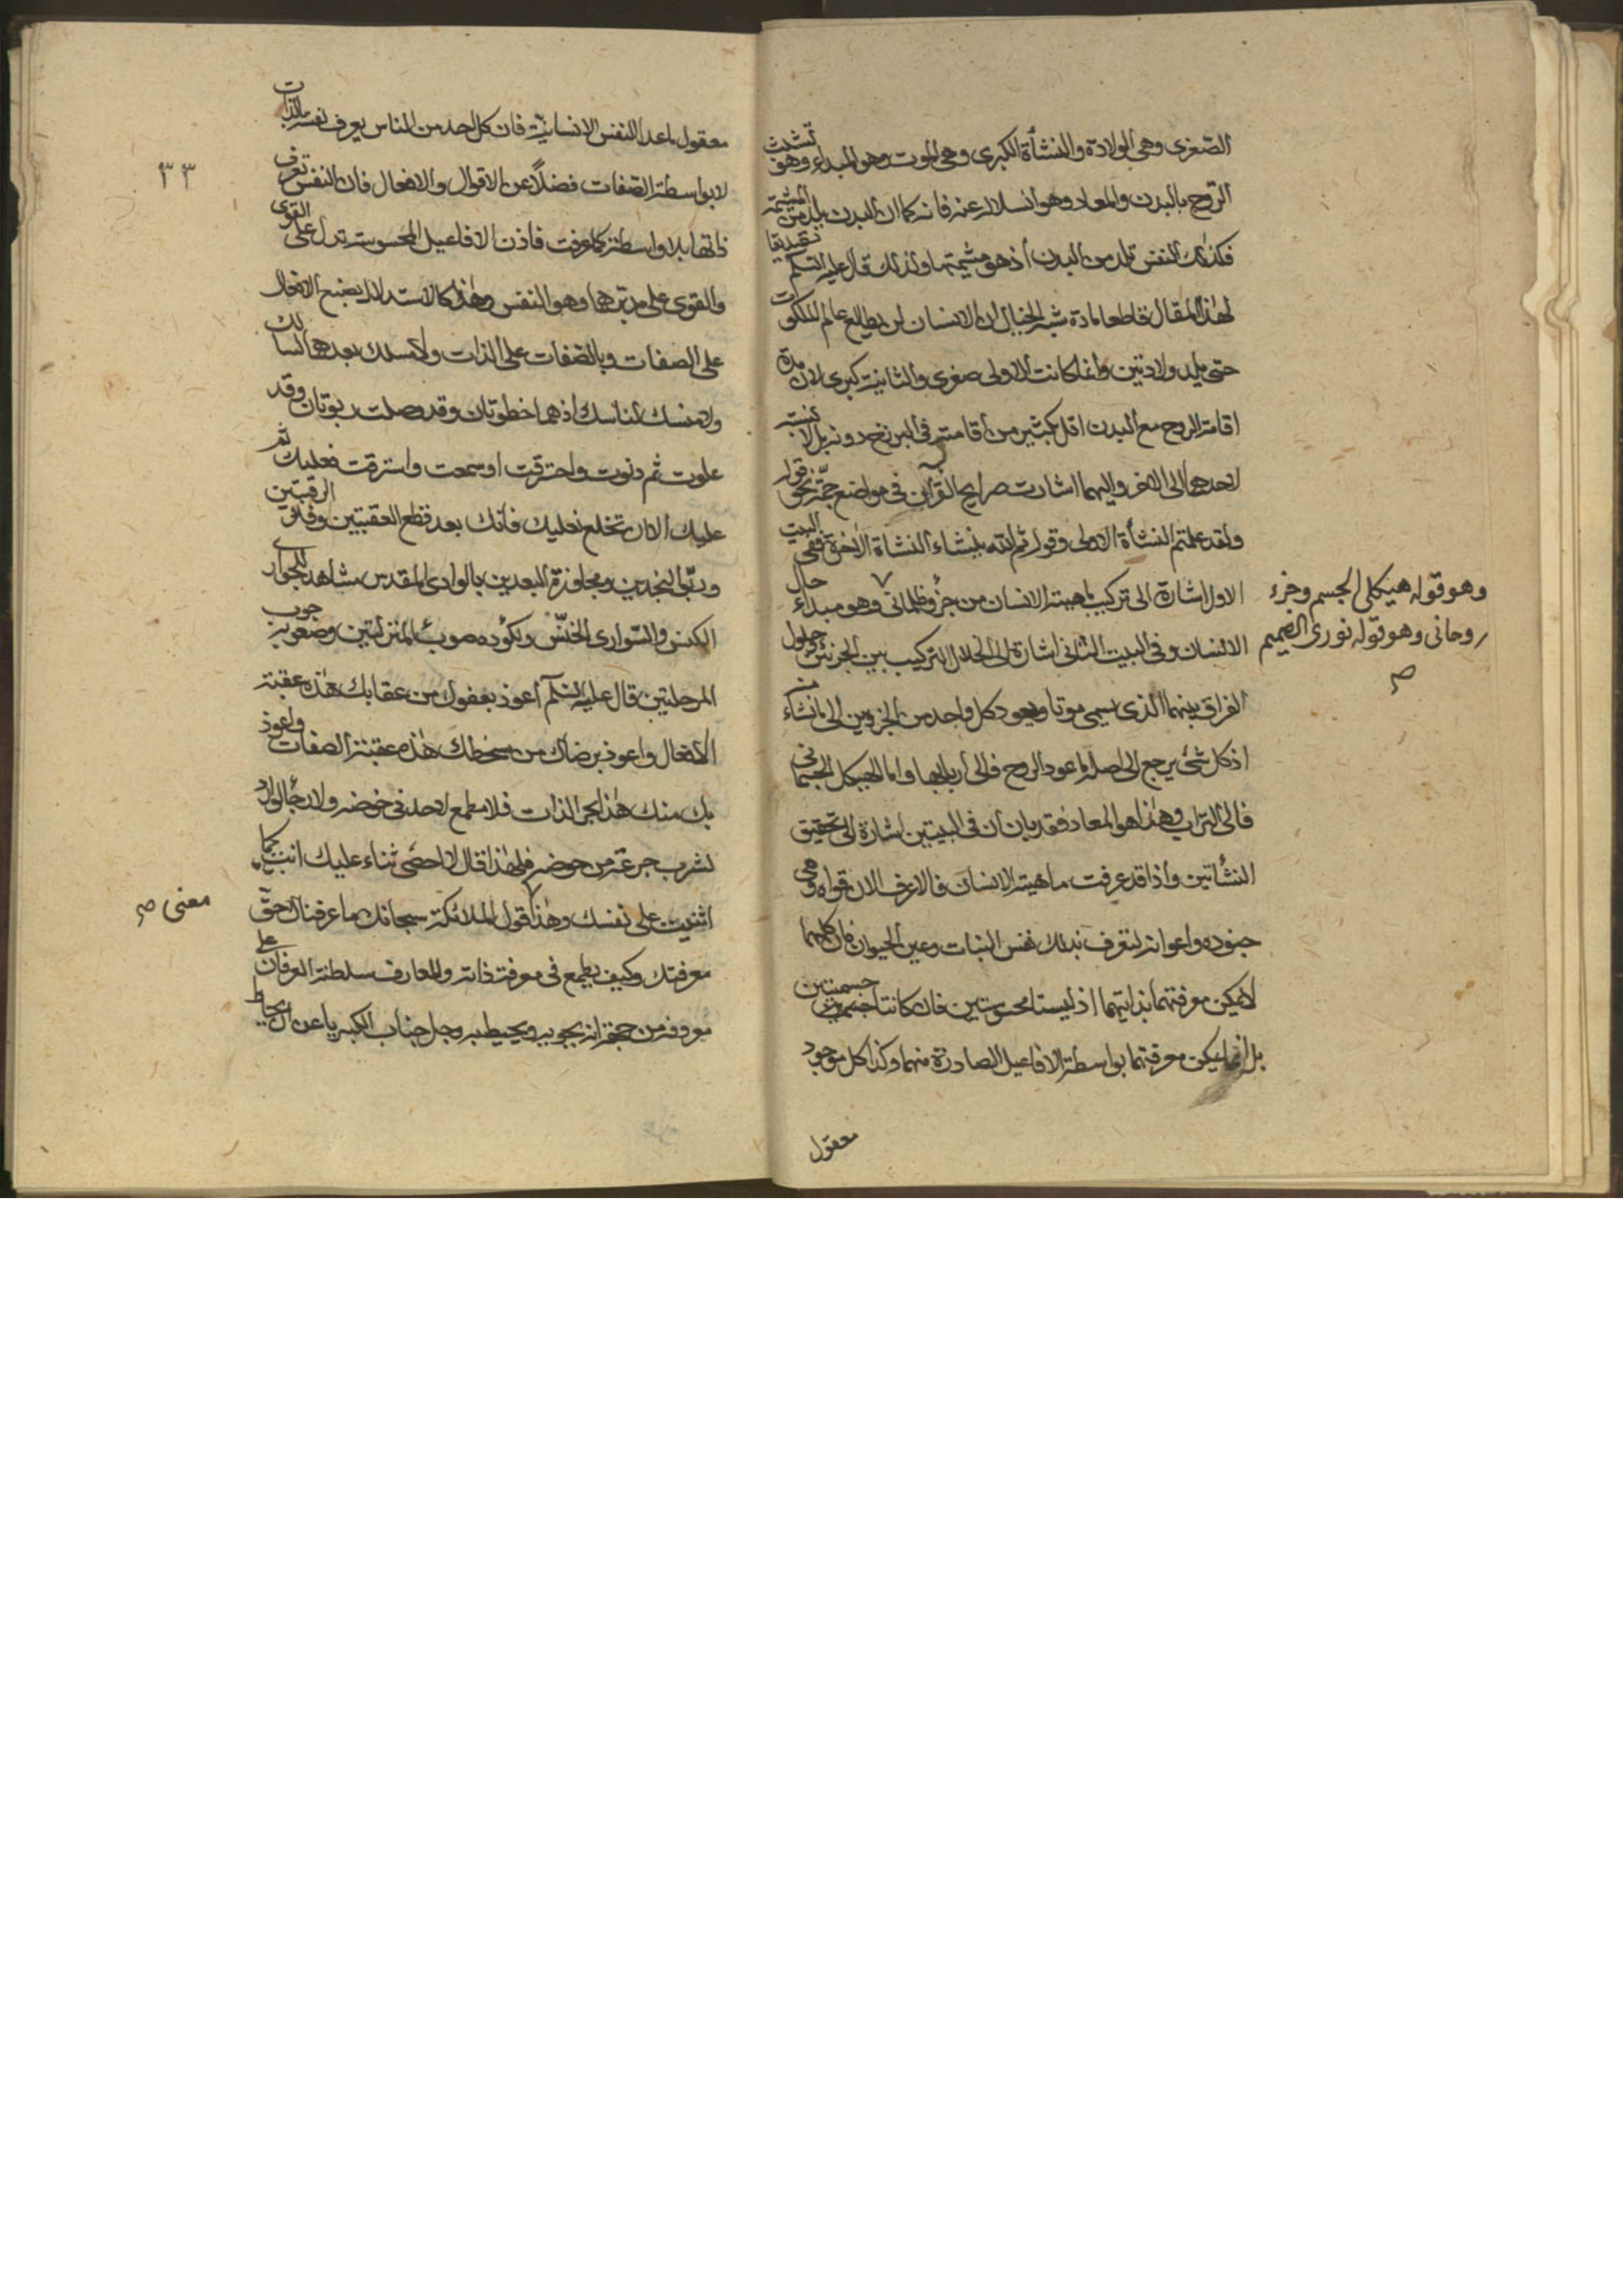 الصغرى وهى الولادة والنشأة الكبرى وهى الموت وهو المبداء وهو تشبث
الروح بالبدن والمعاد وهو انسلاله عنه فانه كما ان البدن يلد من المشيمة
فكذلك النفس تلد من البدن اذ هو مشيمتها ولذلك قال عليه السلم تصديقا
لهذا المقال قاطعا مادة شبه الخيال ان الانسان لن يطالع عالم الملكوت
حتى يلد ولادتين وانما كانت الاولى صغرى والثانية كبرى لان مدة
اقامة الروح مع البدن اقل بكثير من اقامته فى البرزخ دونه بل لا نسبة
لاحدهما الى الاخر واليهما اشارت صرايح القرآن فى مواضع جمة نحو قوله
ولقد علمتم النشأة الاولى وقوله ثم الله ينشاء النشاة الاخرة ففى البيت
الاول اشارة الى تركيب ماهية الانسان من جزؤ ظلمانى وهو مبداء حال
وهو قوله هيكلى الجسم وجزء
روحانى وهو قوله نورى الصميم
صح
الانسان وفى البيت الثانى اشارة الى انحلال التركيب بين الجزئين وحلول
الفراق بينهما الذى سيمى موتا ويعود كل واحد من الجزوين الى ما نشاء منه
اذ كل شئ يرجع الى اصله اما عود الروح فالى اربابها واما الهيكل الجسمانى
فالى التراب وهذا هو المعاد فقد بان ان فى البيتين اشارة الى تحقيق
النشأتين واذا قد عرفت ماهية الانسان فالاعرف الان قواه وهى
جنوده واعوانه لتعرف بذلك نفس النبات وعين الحيوان فان كلهما
لا يمكن معرفتهما بذاتيهما اذ ليستا محسوستين فان كانتا جسميتين
بل انما يمكن معرفتهما بواسطة الافاعيل الصادرة منهما وكذا كل موجود
معقول
٣٣
معقول ما عدا النفس الانسانية فان كل احد من الناس يعرف نفسه بالذات
لا بواسطة الصفات فضلاً عن الاقوال والافعال فان النفس تعرف
ذاتها بلا واسطة كما عرفت فاذن الافاعيل المحسوسة تدل على القوى
والقوى على مدبرها وهو النفس وهذا كالاستدلال بضع الافعال
على الصفات وبالصفات على الذات ولا مسلك بعدهما لسالك
ولا منسك لناسك اذ هما خطوتان وقد وصلت ربوتان وقد
علوت ثم دنوت واحترقت او سمعت واسترقت فعليك ثم
عليك الان ان تخلع نعليك فانك بعد قطع العقبتين وفك الرقبتين
وربى النجدين ومجاوزة البعدين بالوادى المقدس شاهد للجوارى
الكنس والسوارى الخنس ولكوده صوب المنزلتين وصعوبة جوب
المرحلتين قال عليه السلم اعوذ بعفوك من عقابك هذه عقبة
الافعال واعوذ برضاك من سخطك هذه عقبة الصفات واعوذ
بك منك هذا بحر الذات فلا مطمع لاحد فى خوضه ولا رجا لوارد
لشرب جرعة من حوضه فلهذا قال لا احصى ثناء عليك انت كما
اثنيت على نفسك وهذا قول الملائكة سبحانك ما عرفناك حق
معنى صح
معرفتك وكيف يطمع فى معرفة ذاته وللعارف سلطنة العرفان على
معروفه من حيث انه يحويه ويحيط به وجل جناب الكبرياء عن ان يحاط